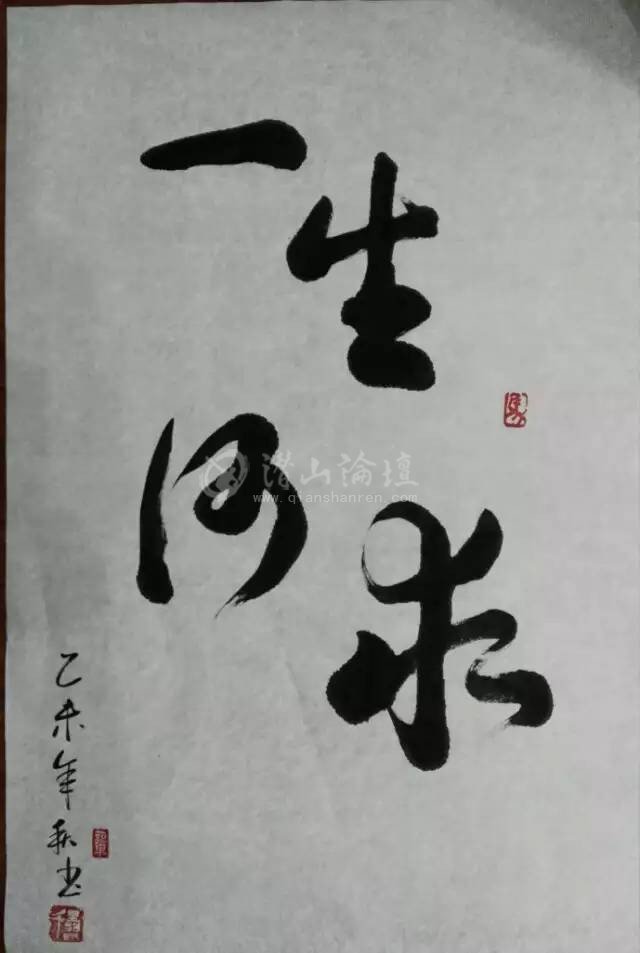 一生
何求
乙未年秋书
潜山論壇
www.qianshanren.com